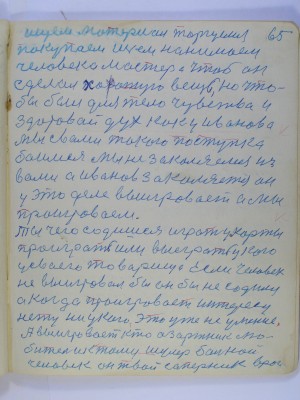 ищем материал торгуемся 65
покупаем ищем нанимаем
человека мастера чтоб он
сделал хорошую вещь, но что-
бы был для тело чувства и
здоровой дух как у иванова
мы с вами такого поступка
боимся мы не закаляемся
вами а иванов закаляется он
у это деле выигровает а мы
проигроваем.
Ты чего садишся играть у карты
проиграть или выеграть у кого
у своего товарища Если человек
не выигровал бы он бы не садился
а когда проигровает интересу
нету ни у кого. Это уже не умение,
А выигровает кто азартник лю-
битель к тому
человек он твой саперник враг